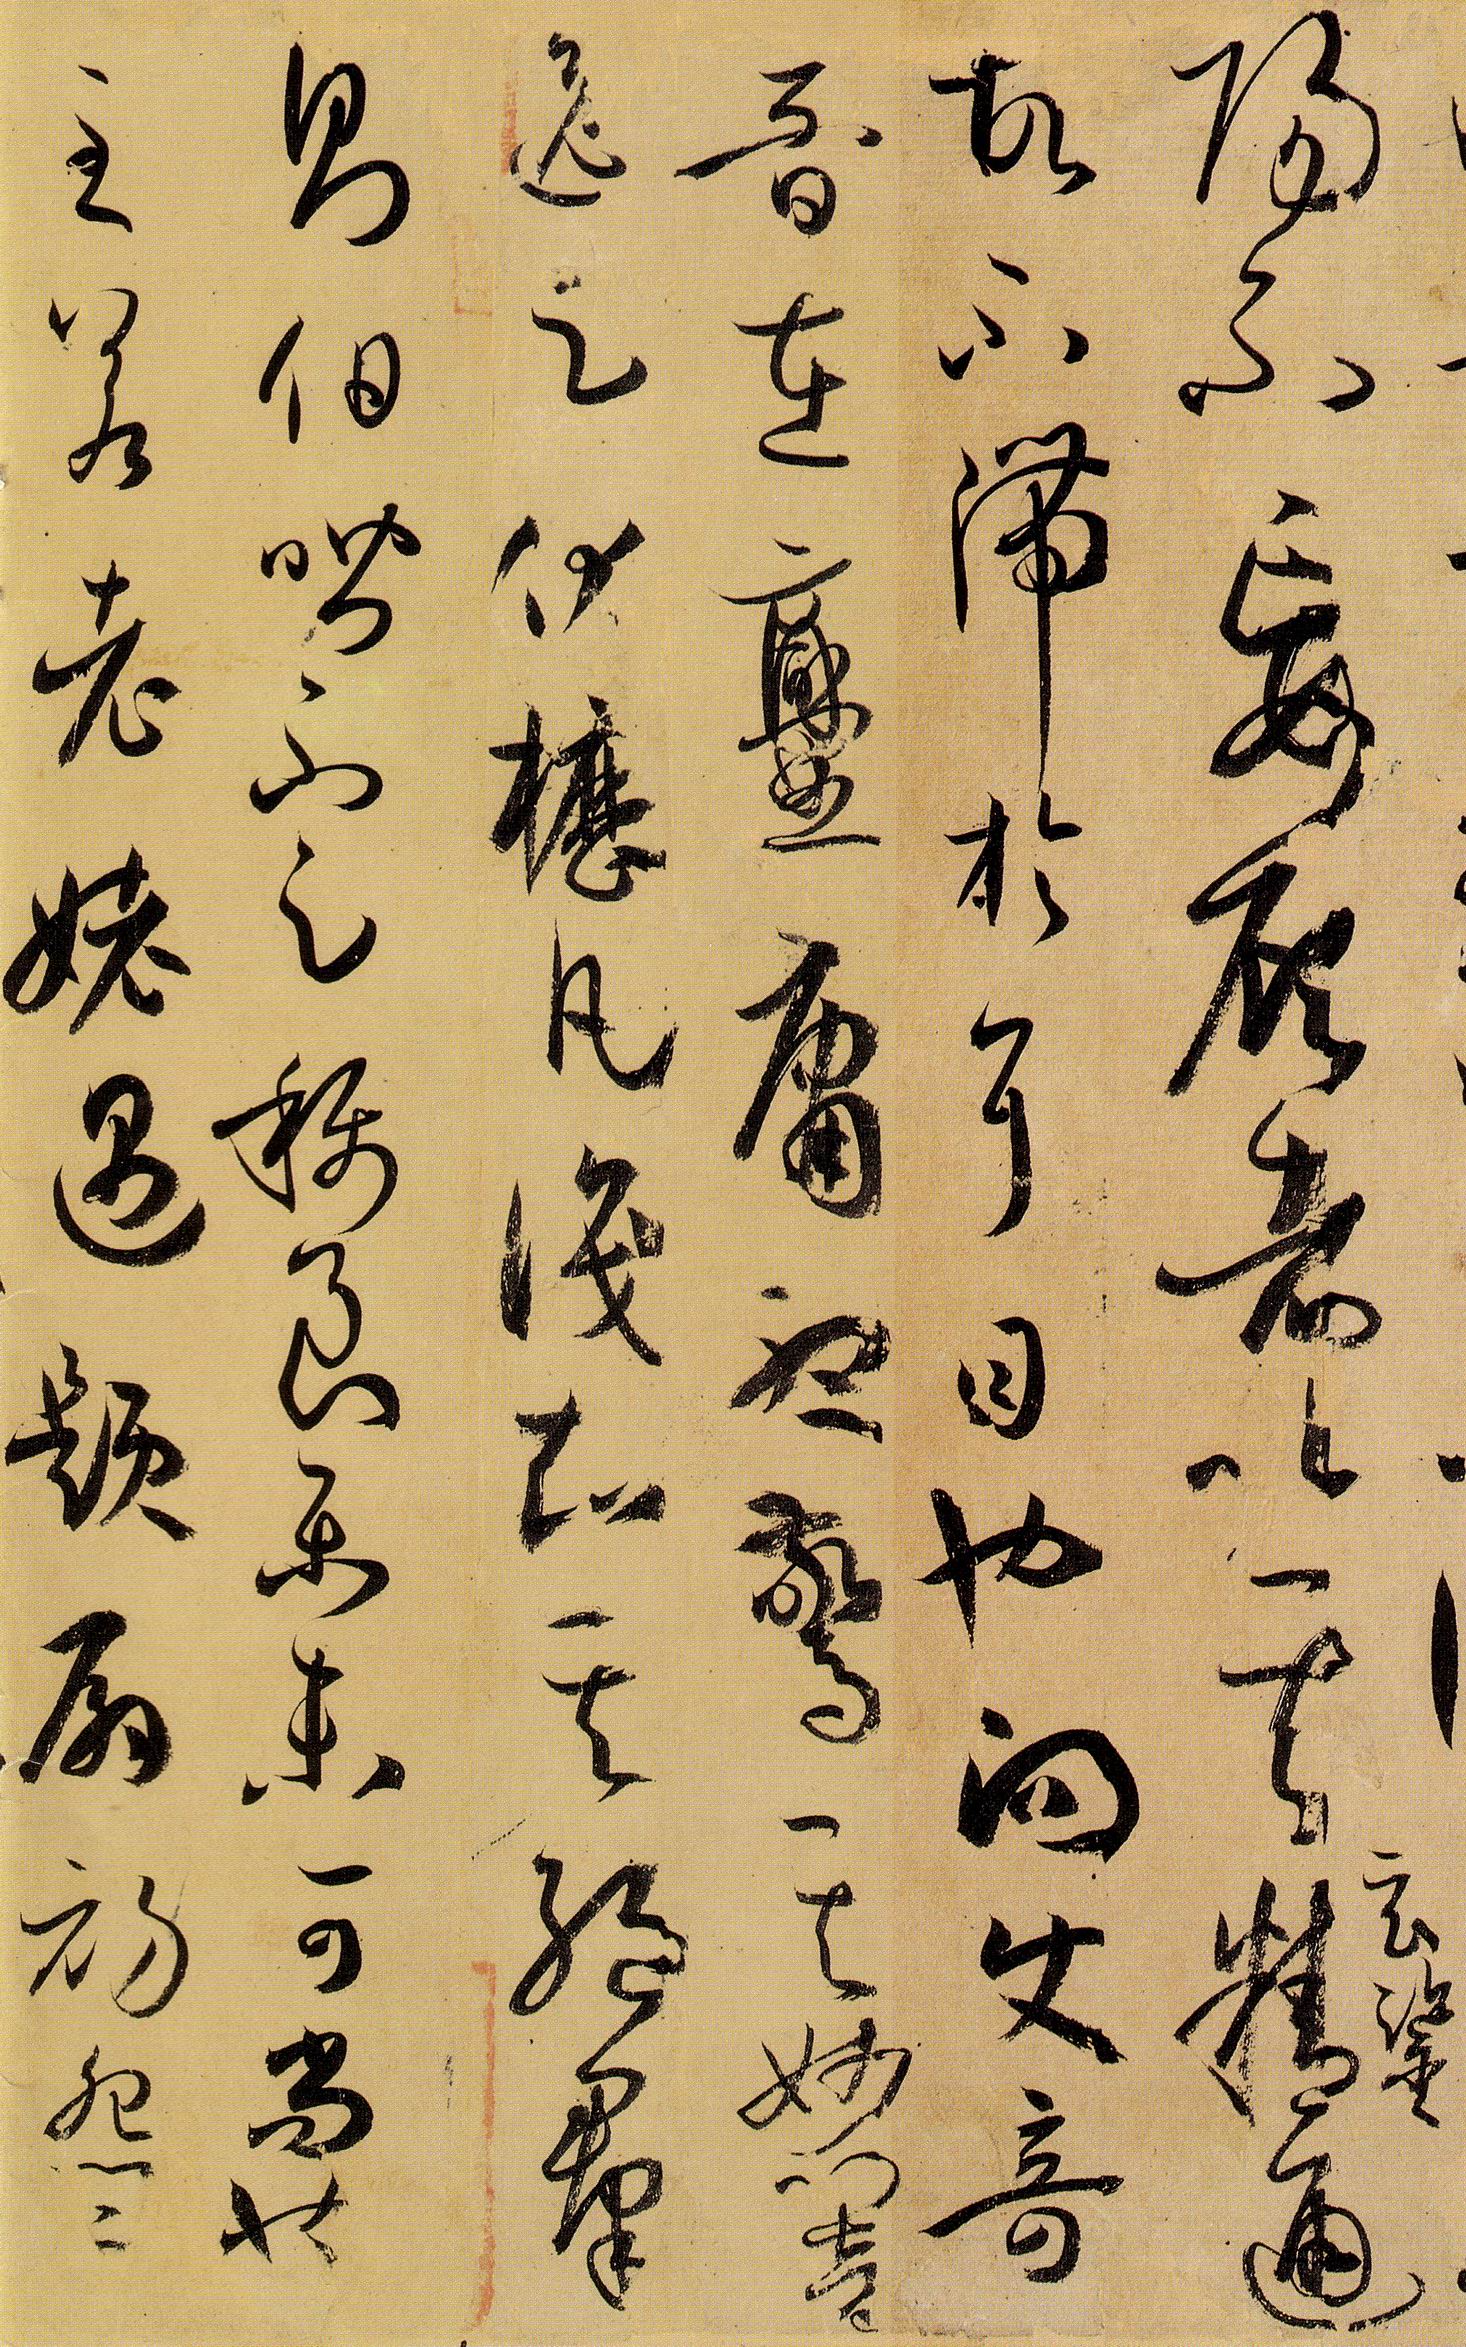 陽不妄顧者以其玄鑒精通
故不滯於耳目也向使奇
音在爨庸聽驚其妙響
逸足伏櫪凡識知其絕羣
則伯喈不足稱良樂未可尚也
至若老姥遇題扇初怨